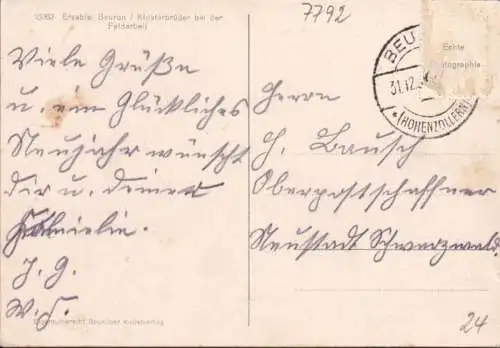 10362 Erzabtei Beuron / Klosterbrüder bei der
Feldarbeit
7792
Viele Grüße
u. ein Glückliches
Neujahr wünscht
dir u. deiner
Familie.
J. G.
W. S.
BEU
31.12.
(HOHENZOLLERN)
Echte
Photographie
Herrn
H. Bausch
Oberpostschaffner
Neustadt Schwarzwald.
Beuroner Kunstverlag
24